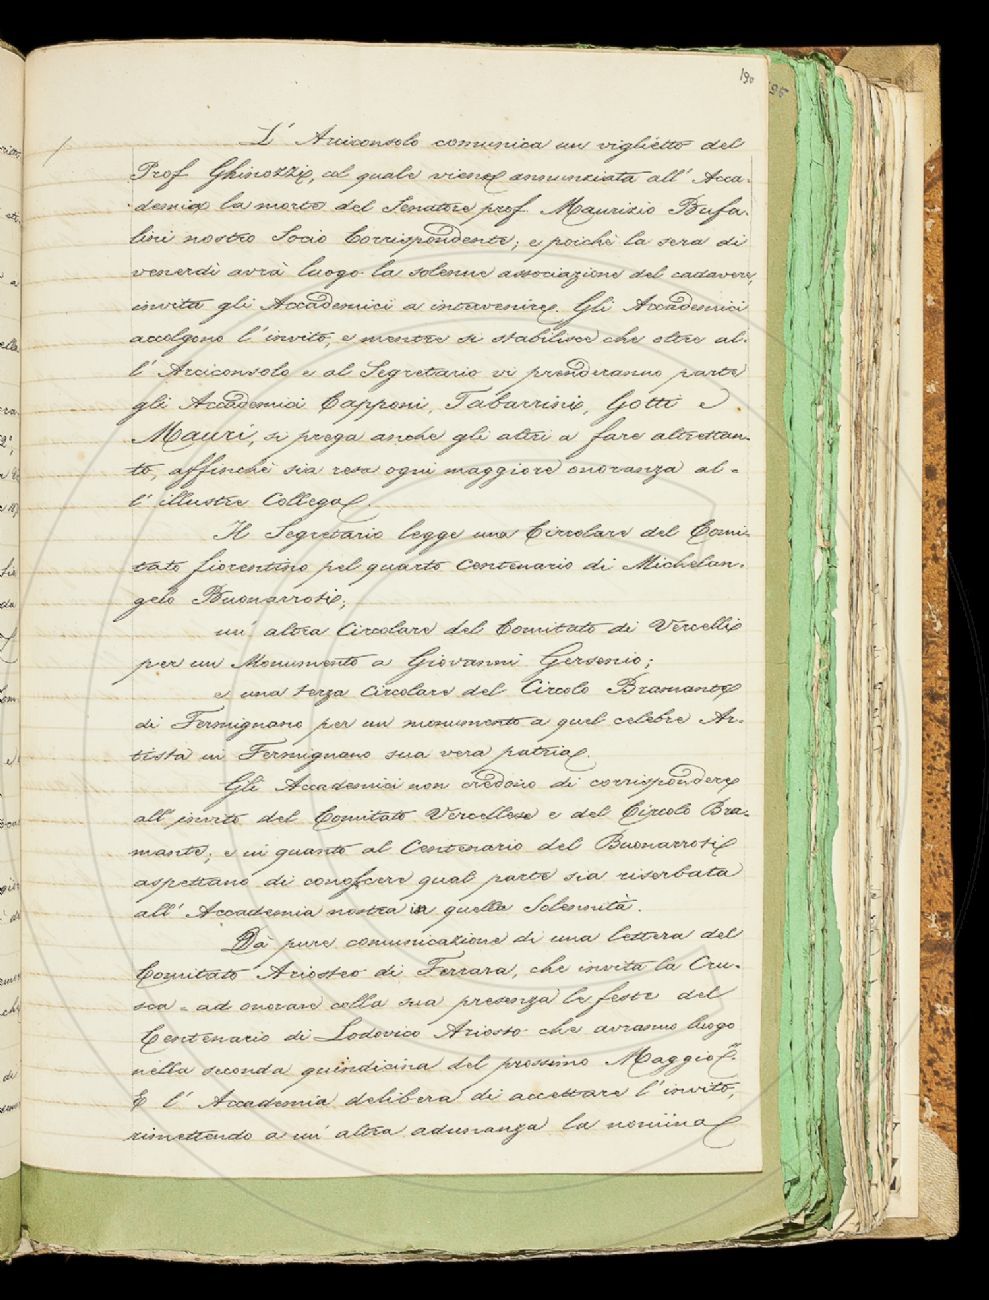 190
95
L' Arciconsolo comunica un viglietto del
Prof Ghinozzi, col quale viene annunziata all' Acca-
demia la morte del Senatore prof. Maurizio Bufa-
lini nostro Socio Corrispondente; e poichè la sera di
venerdì avrà luogo la solenne associazione del cadavere,
invita gli Accademici a intervenire. Gli Accademici
accolgono l' invito, e mentre si stabilisce che oltre al-
l' Arciconsolo e al Segretario vi prenderanno parte
gli Accademici Capponi, Tabarrini, Gotti e
Mauri, si prega anche gli altri a fare altrettan-
to, affinchè sia resa ogni maggiore onoranza al-
l' illustre Collega.
Il Segretario legge una Circolare del Comi-
tato fiorentino pel quarto Centenario di Michelan-
gelo Buonarroti;
un' altra Circolare del Comitato di Vercelli
per un Monumento a Giovanni Gersenio;
e una terza Circolare del Circolo Bramante
di Fermignano per un monumento a quel celebre Ar-
tista in Fermignano sua vera patria.
Gli Accademici non credono di corrispondere
all' invito del Comitato Vercellese e del Circolo Bra-
mante; e in quanto al Centenario del Buonarroti
aspettano di conoscere qual parte sia riserbata
all' Accademia nostra in quelle Solennità.
Dà pure comunicazione di una lettera del
Comitato Ariosteo di Ferrara, che invita la Cru-
sca ad onorare colla sua presenza le feste del
Centenario di Lodovico Ariosto che avranno luogo
nella seconda quindicina del prossimo Maggio.
E l' Accademia delibera di accettare l' invito,
rimettendo a un' altra adunanza la nomina